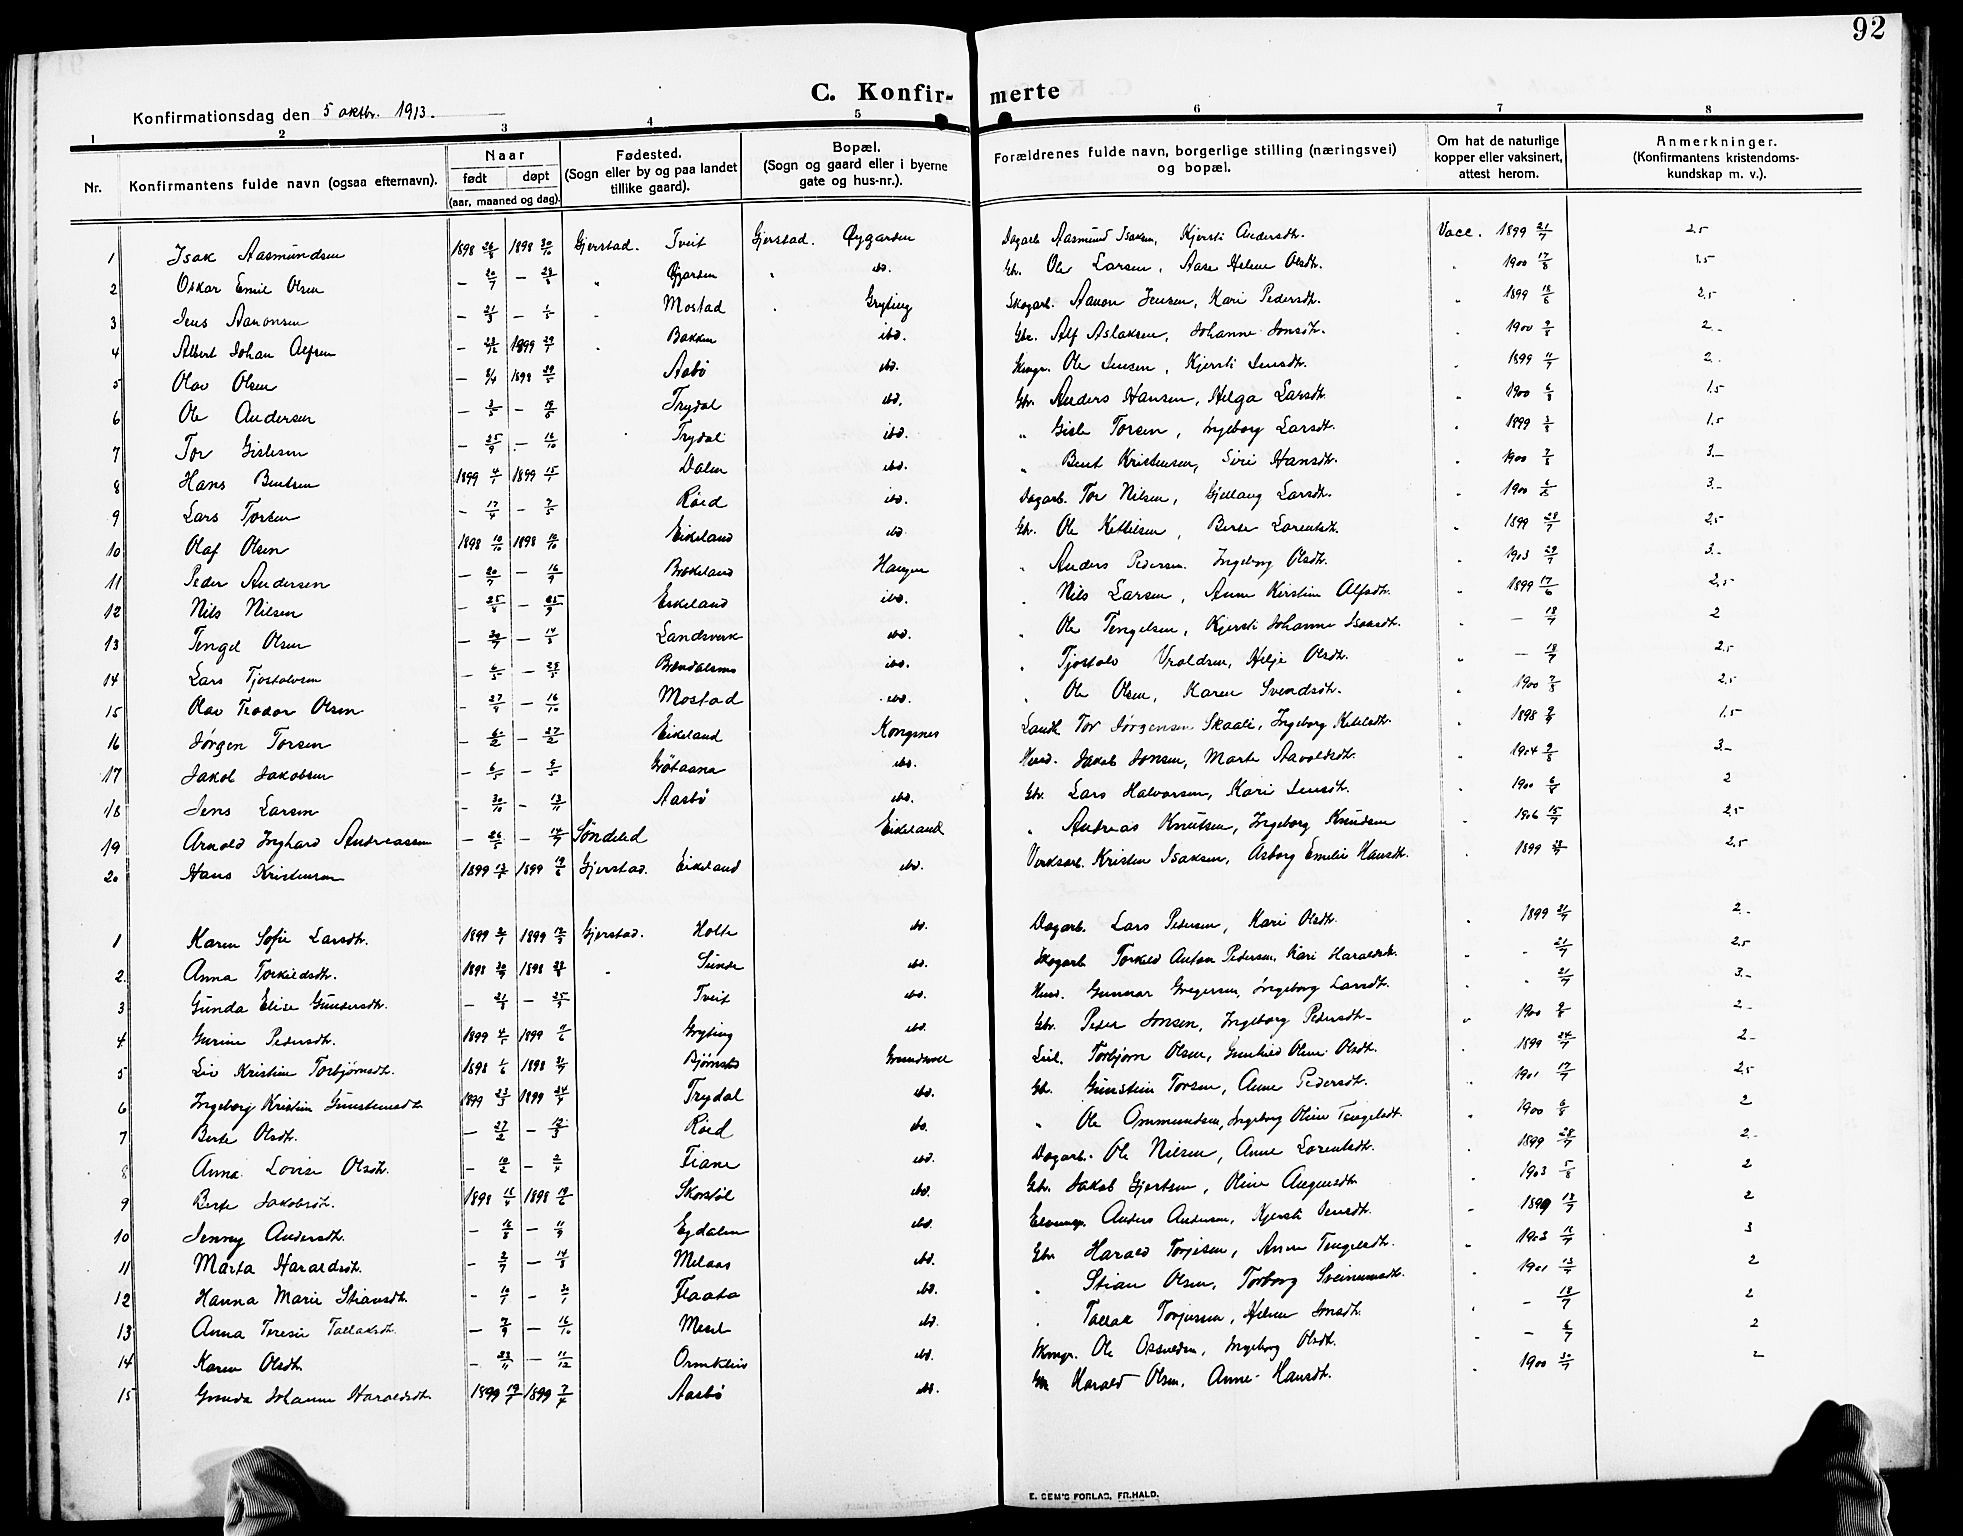 92
C. Konfirmerte
Konfirmationsdag den 5 oktbr. 1913.
1 2 3 4 5 6 7 8
Nr. Konfirmantens fulde navn (ogsaa efternavn). Naar født døpt (aar, maaned og dag). Fødested. (Sogn eller by og paa landet tillike gaard). Bopæl. (Sogn og gaard eller i byerne gate og hus-nr.). Forældrenes fulde navn, borgerlige stilling (næringsvei) og bopæl. Om hat de naturlige kopper eller vaksinert, attest herom. Anmerkninger. (Konfirmantens kristendoms-kundskap m. v.).
1 Isak Aasmundsen 1898 26/8 1898 30/10 Gjerstad. Tveit Gjerstad. Øygarden Dagarb. Aasmund Isaksen, Kjersti Andersdtr. Vacc. 1899 21/7 2,5
2 Oskar Emil Olsen — 20/7 — 28/8 " Øygarden " ibd. Gbr. Ole Larsen, Aase Helene Olsdtr. " 1900 17/8 1,5
3 Jens Aanonsen — 21/3 — Mostad Gryting Skogarb. Aanon Jensen, Kari Pedersdtr. " 1899 18/6 2,5
4 Albert Johan Alfsen — 28/12 1899 29/1 Bakken ibd. Gbr. Alf Aslaksen, Johanne Jonsdtr. " 1900 9/8 2.-
5 Olav Olsen — 8/4 1898 29/5 Aasbø ibd. Ole Jensen, Kjersti Jensdtr. " 1899 11/7 2.-
6 Ole Andersen — 3/5 — 19/6 Trydal ibd. Gbr. Anders Hansen, Helga Larsdtr. " 1900 6/8 1,5
7 Tor Gislesen — 25/9 — 16/10 Trydal ibd. " Gisle Torsen, Ingeborg Larsdtr. " 1899 3/8 1,5
8 Hans Bentsen 1899 4/1 1899 15/1 Dalen ibd. " Bent Kristensen, Siri Hansdtr. " 1900 7/8 3.-
9 Lars Torsen — 17/4 — 7/5 Røed ibd. Dagarb. Tor Nilsen, Gjellaug Larsdtr. " 1900 6/8 3.-
10 Olaf Olsen 1898 10/10 1898 16/10 Eikeland ibd. Gbr. Ole Kettilsen, Berte Lorentsdtr. " 1899 28/7 2,5
11 Peder Andersen — 20/7 — 16/9 Brekeland Haugen " Anders Pedersen. Ingeborg Olsdtr. " 1903 29/7 3.-
12 Nils Nilsen — 25/8 — 25/9 Eikeland ibd. " Nils Larsen, Anne Kirstine Alfsdtr. " 1899 17/6 2,5
13 Tengel Olsen — — 14/8 Landsverk ibd. " Ole Tengelsen, Kjersti Johanne Isaksdtr. " — 18/7 2
14 Lars Tjostolvsen — 6/5 — 28/5 Brøndalsmo ibd. " Tjostolv Vraldsen, Helje Olsdtr. " — 18/7 2,5
15 Olav Teodor Olsen — 27/9 — 16/10 Mostad ibd. " Ole Olsen, Karen Svendsdtr. " 1900 7/8 2,5
16 Jørgen Torsen — 6/2 — 27/2 Eikeland Kongsnes Landh. Tor Jørgensen Skaali, Ingeborg Ketilsdtr. " 1898 1,5
17 Jakob Jakobsen — 6/5 — 8/5 Grøtaana ibd. Husd. Jakob Jonsen, Marte Aavoldsdtr. " 1904 9/8 3.-
18 Jens Larsen — 30/10 — 13/11 Aasbø ibd. Gbr. Lars Halvorsen, Kari Jensdtr. " 1900 6/8 2
19 Arnold Inghard Andreassen — — Søndeled Eikeland " Andreas Knutsen, Ingeborg Knudsen " 1906 15/7 2,5
20 Hans Kristensen 1899 1899 Gjerstad. Eikeland ibd. Verksarb. Kristen Isaksen, Asborg Emelie Hansdtr. " 1899 2,5
1 Karen Sofie Larsdtr. 1899 1899 12/3 Gjerstad. Holte ibd. Dagarb. Lars Pedersen, Kari Olsdtr. " 1899 21/7 2.-
2 Anna Torkildsdtr. 1898 20/7 1898 28/8 " Sunde ibd. Skogarb. Torkild Anton Pedersen, Kari Haraldsdtr. " - 21/7 2,5
3 Gunda Elise Gundersdtr. — 21/8 — 25/9 Tveit ibd. Husd. Gunnar Gregersen, Ingeborg Larsdtr. " " 21/7 3.-
4 Gurine Pedersdtr. 1899 4/5 1899 11/6 Gryting ibd. Gbr. Peder Jonsen, Ingeborg Pedersdtr. " 1900 9/8 2.-
5 Liv Kristine Torbjørnsdtr. 1898 1/6 1898 31/7 Bjørnsto Grundsvoll Torbjørn Olsen, Gunhild Oline Olsdtr. 1899 24/7 2.-
6 Ingeborg Kristine Gunsteinsdtr. 1899 23/3 1899 24/4 Trydal ibd. Gbr. Gunstein Torsen, Anne Pedersdtr. " 1901 17/7 2,5
7 Berte Olsdtr. — 27/2 — 12/3 Røed ibd. " Ole Ommundsen, Ingeborg Oline Tengelsdtr. " 1900 6/8 2
8 Anna Lovise Olsdtr. — 10/2 — 2/4 Fiane ibd. Dagarb. Ole Nilsen, Anne Lorentsdtr. " 1899 28/7 2.-
9 Berte Jakobsdtr. 1898 15/4 1898 19/6 Skorstøl ibd. Gbr. Jakob Gjertsen, Oline Augensdtr. " 1903 5/8 2
10 Jenny Andersdtr. — 16/8 — 11/9 Egdalen ibd. Anders Andersen, Kjersti Jensdtr. " 1899 18/7 2
11 Marta Haraldsdtr. — — 14/8 Melaas ibd. Gbr. Harald Torjesen, Anne Tengelsdtr. " 1903 15/7 3
12 Hanna Marie Stiansdtr. — 10/7 — Flaata ibd. " Stian Olsen, Torborg Sveinunsdtr. " 1901 13/7 2
13 Anna Teresie Tallaksdtr. — 7/9 — 16/10 Mesel ibd. " Tallak Torjussen, Helene Jonsdtr. " — 18/7 2
14 Karen Olsdtr. — 23/11 — 11/12 Ormkleiv ibd. Ole Osuldsen, Ingeborg Olsdtr. " — 6/7 2
15 Gunda Johanne Haraldsdtr. 1899 19/1 1899 3/4 Aasbø ibd. Gbr. Harald Olsen, Anne Hansdtr. " 1900 30/7 2
E. SEM'S FORLAG, FR.HALD.